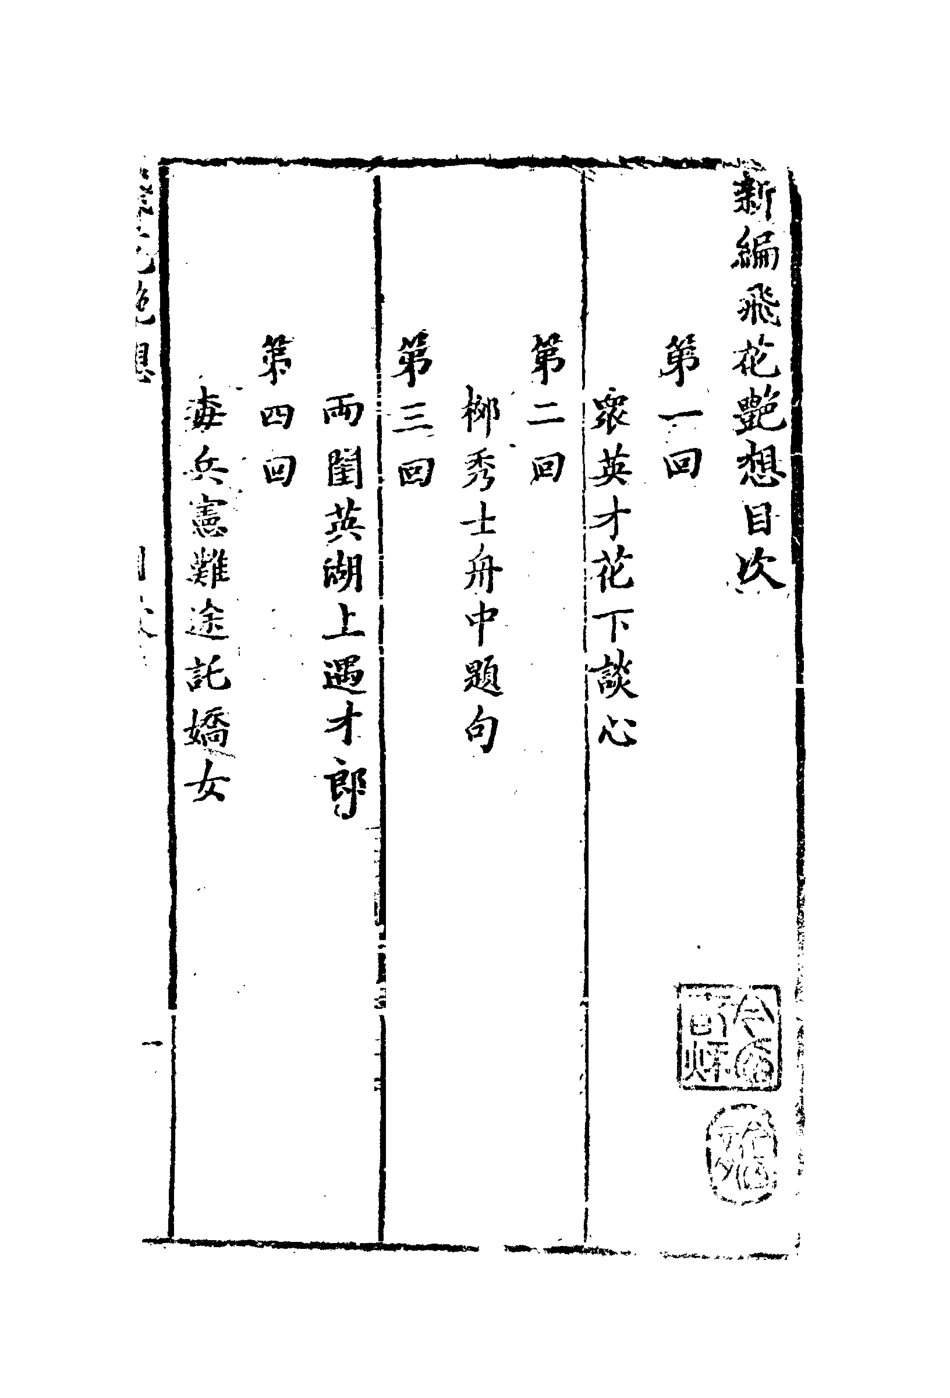 新編飛花艷想目次
第一回
衆英才花下談心
第二回
栁秀士舟中題句
第三回
兩閨英湖上遇才郎
第四回
毒兵憲難途託嬌女
一